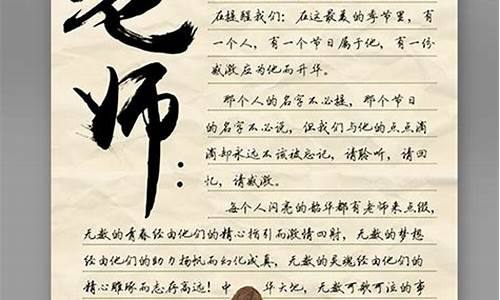 老师：
在提醒我们：在这最美的季节里，有
一个人，有一个节日属于他，有一份
感激应为他而升华。
那个人的名字不必提，那个节日
的名字不必说，但我们与他的点点滴
滴却永远不该被忘记，请聆听，请回
忆，请感激。
每个人闪亮的韶华都有老师来点缀，
无数的青春经由他们的精心指引而激情四射，无数的梦想
经由他们的助力扬帆而幻化成真，无数的灵魂经由他们的
精心雕琢而志存高远！中华大地，无数可歌可泣的事